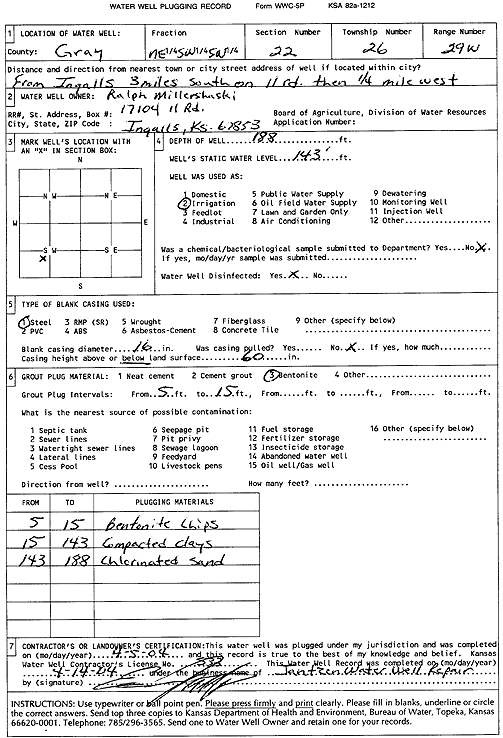 WATER WELL PLUGGING RECORD Form WWC-5P KSA 82a-1212
1 LOCATION OF WATER WELL: Fraction Section Number Township Number Range Number
County: Gray NE1/4SW1/4SW1/4 22 26 29W
Distance and direction from nearest town or city street address of well if located within city?
From Ingalls 3 miles South on 11 Rd. then 1/4 mile west
2 WATER WELL OWNER: Ralph
RR#, St. Address, Box #: 17104 11 Rd. Board of Agriculture, Division of Water Resources
City, State, ZIP Code : Ingalls, Ks. 67853 Application Number:
3 MARK WELL'S LOCATION WITH AN "X" IN SECTION BOX:
N
N W N E
W E
S W S E
X
S
4 DEPTH OF WELL.....188.....ft.
WELL'S STATIC WATER LEVEL....143....ft.
WELL WAS USED AS:
1 Domestic 5 Public Water Supply 9 Dewatering
2 Irrigation 6 Oil Field Water Supply 10 Monitoring Well
3 Feedlot 7 Lawn and Garden Only 11 Injection Well
4 Industrial 8 Air Conditioning 12 Other...........
Was a chemical/bacteriological sample submitted to Department? Yes....No.X.
If yes, mo/day/yr sample was submitted....................
Water Well Disinfected: Yes.X.. No......
5 TYPE OF BLANK CASING USED:
1 Steel 3 RMP (SR) 5 Wrought 7 Fiberglass 9 Other (specify below)
2 PVC 4 ABS 6 Asbestos-Cement 8 Concrete Tile ....................
Blank casing diameter....16....in. Was casing pulled? Yes...... No.X.. If yes, how much..........
Casing height above or below land surface.......60.......in.
6 GROUT PLUG MATERIAL: 1 Neat cement 2 Cement grout 3 Bentonite 4 Other....................
Grout Plug Intervals: From..5..ft. to..15.ft., From......ft. to ......ft., From...... to......ft.
What is the nearest source of possible contamination:
1 Septic tank 6 Seepage pit 11 Fuel storage 16 Other (specify below)
2 Sewer lines 7 Pit privy 12 Fertilizer storage ....................
3 Watertight sewer lines 8 Sewage lagoon 13 Insecticide storage
4 Lateral lines 9 Feedyard 14 Abandoned water well
5 Cess Pool 10 Livestock pens 15 Oil well/Gas well
Direction from well? .................... How many feet? ....................
FROM TO PLUGGING MATERIALS
5 15 Bentonite Chips
15 143 Compacted clays
143 188 Chlorinated Sand
7 CONTRACTOR'S OR LANDOWNER'S CERTIFICATION:This water well was plugged under my jurisdiction and was completed
on (mo/day/year)......4-5-04......and this record is true to the best of my knowledge and belief. Kansas
Water Well Contractor's License No. ..... This Water Well Record was completed on (mo/day/year)
....4-14-04.... under the business name of Jantzen Water Well Repair
by (signature)
INSTRUCTIONS: Use typewriter or ball point pen. Please press firmly and print clearly. Please fill in blanks, underline or circle
the correct answers. Send top three copies to Kansas Department of Health and Environment, Bureau of Water, Topeka, Kansas
66620-0001. Telephone: 785/296-3565. Send one to Water Well Owner and retain one for your records.